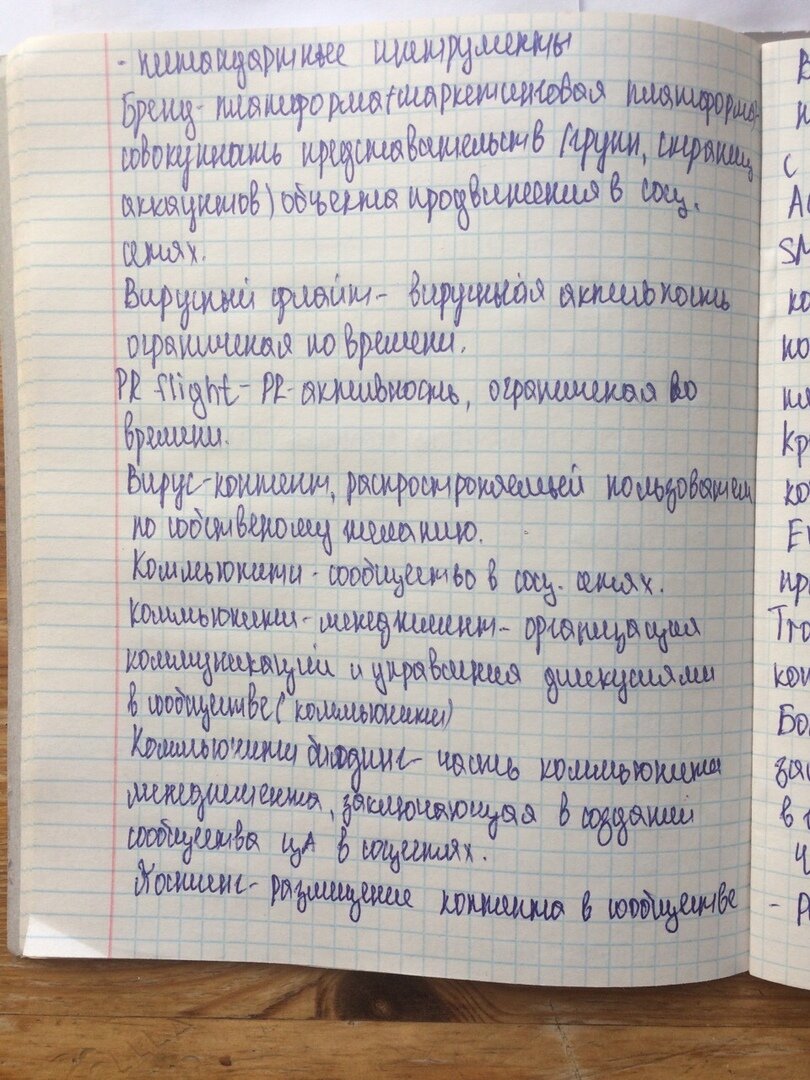 - нестандартные инструменты
Бренд-платформа (маркетинговая платформа)-
совокупность представительств (групп, страниц
аккаунтов) объекта продвижения в соц.
сетях.
Вирусный флайт - вирусная активность
ограниченая по времени.
PR flight - PR-активность, ограниченая во
времени.
Вирус-контент, распространяемый пользователем
по собственому желанию.
Коммьюнити - сообщество в соц. сетях.
коммьюнити-менеджмент - организация
коммуникаций и управления дискусиями
в сообществе (коммьюнити)
Коммьюнити билдинг - часть коммьюнити
менеджмента, заключающая в создании
сообщества ЦА в соцсетях.
Постинг - размещение контента в сообществе
В
п
с
А
SM
ко
по
Кр
ко
пр
Tra
кон
Бо
за
в
Ч
- Р